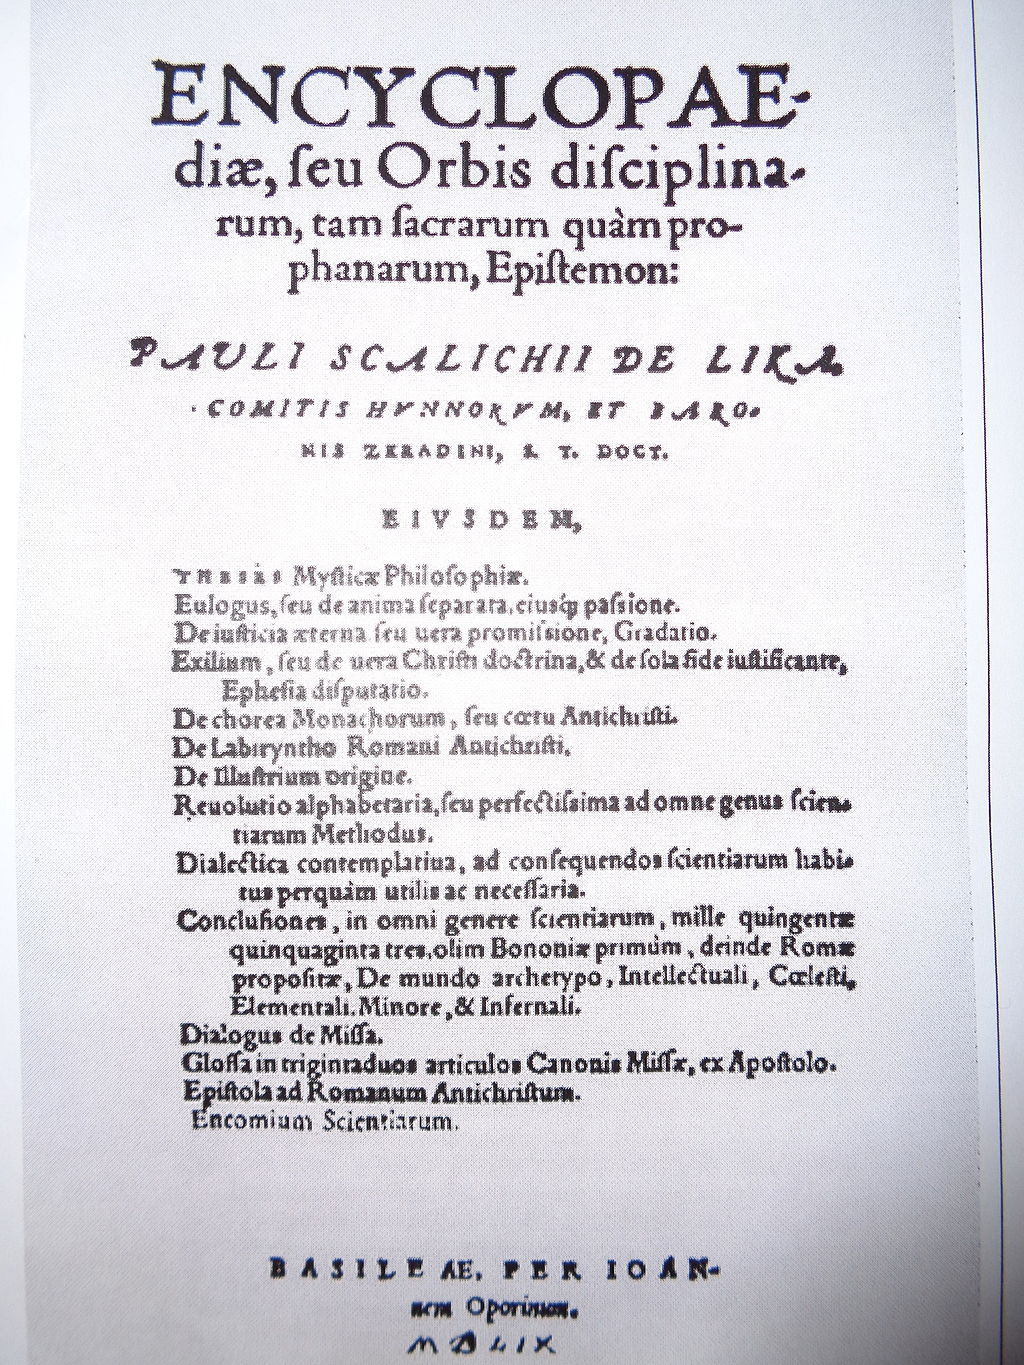 ENCYCLOPAE-
diæ, ſeu Orbis diſciplina-
rum, tam ſacrarum quàm pro-
phanarum, Epiſtemon:
PAULI SCALICHII DE LIKA,
COMITIS HVNNORVM, ET BARO-
NIS ZKRADINI, S. T. DOCT.
EIVSDEM,
THESES Myſticæ Philoſophiæ.
Eulogus, ſeu de anima ſeparata, eiusq́; paſsione.
De iuſticia æterna ſeu uera promiſsione, Gradatio.
Exilium, ſeu de uera Chriſti doctrina, & de ſola fide iuſtificante,
Epheſia diſputatio.
De chorea Monachorum, ſeu cœtu Antichriſti.
De Labyryntho Romani Antichriſti.
De Illuſtrium origine.
Reuolutio alphabetaria, ſeu perfectiſsima ad omne genus ſcien-
tiarum Methodus.
Dialectica contemplatiua, ad conſequendos ſcientiarum habi-
tus perquàm utilis ac neceſſaria.
Concluſiones, in omni genere ſcientiarum, mille quingentæ
quinquaginta tres, olim Bononiæ primùm, deinde Romæ
propoſitæ, De mundo archetypo, Intellectuali, Cœleſti,
Elementali, Minore, & Infernali.
Dialogus de Miſſa.
Gloſſa in trigintaduos articulos Canonis Miſſæ, ex Apoſtolo.
Epiſtola ad Romanum Antichriſtum.
Encomium Scientiarum.
BASILEAE, PER IOAN-
nem Oporinum.
MDLIX